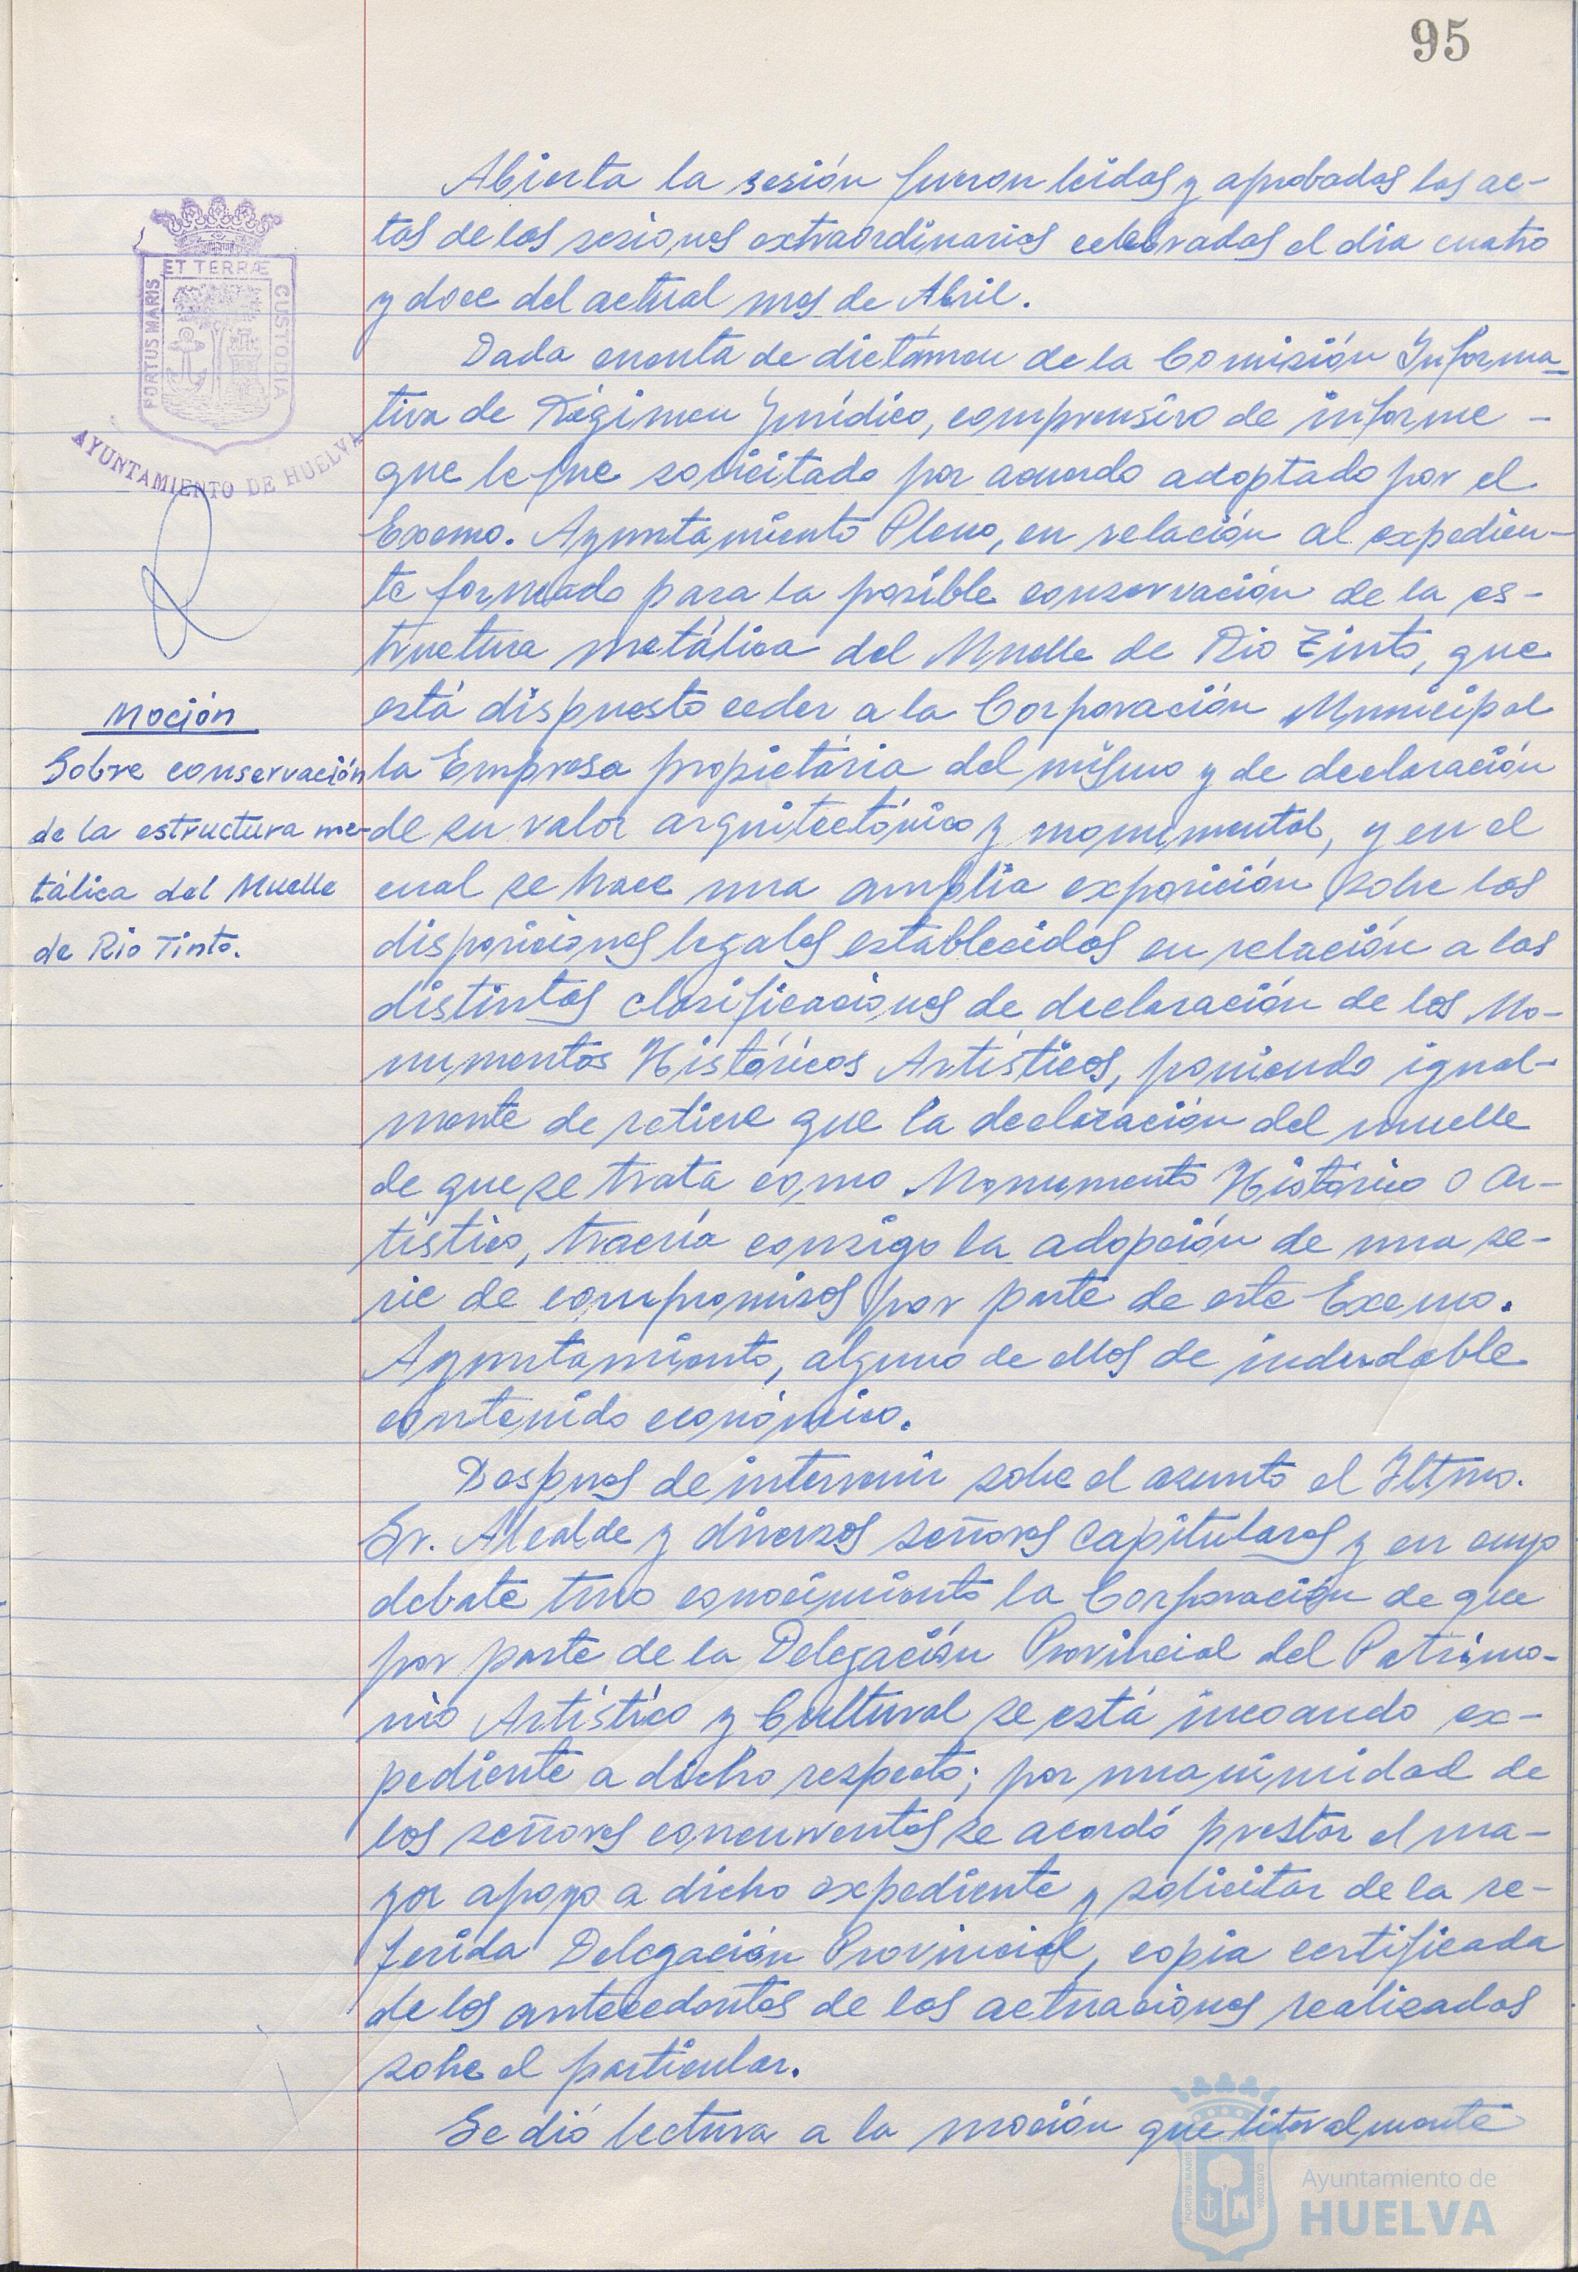 95
Abierta la sesión fueron leidas y aprobadas las ac-
tas de las sesiones extraordinarias celebradas el dia cuatro
y doce del actual mes de Abril.
Dada cuenta de dictámen de la Comisión Informa-
tiva de Régimen Jurídico, comprensivo de informe -
que le fue solicitado por acuerdo adoptado por el
Excmo. Ayuntamiento Pleno, en relación al expedien-
te formado para la posible conservación de la es-
tructura metálica del Muelle de Rio Tinto, que
está dispuesto ceder a la Corporación Municipal
la Empresa propietária del mismo y de declaración
de su valor arquitectónico y monumental, y en el
cual se hace una amplia exposición sobre las
disposiciones legales establecidas en relación a las
distintas clasificaciones de declaración de los Mo-
numentos Históricos Artísticos, poniendo igual-
mente de relieve que la declaración del muelle
de que se trata como Monumento Histórico o Ar-
tístico, traería consigo la adopción de una se-
rie de compromisos por parte de este Excmo.
Ayuntamiento, alguno de ellos de indudable
contenido económico.
Despues de intervenir sobre el asunto el Iltmo.
Sr. Alcalde y diversos señores Capitulares y en cuyo
debate tuvo conocimiento la Corporación de que
por parte de la Delegación Provincial del Patrimo-
nio Artístico y Cultural se está incoando ex-
pediente a dicho respecto; por unanimidad de
los señores concurrentes se acordó prestar el ma-
yor apoyo a dicho expediente y solicitar de la re-
ferida Delegación Provincial, copia certificada
de los antecedentes de las actuaciones realizadas
sobre el particular.
Se dió lectura a la moción que literalmente
ET TERRÆ
PORTUS MARIS
CUSTODIA
AYUNTAMIENTO DE HUELVA
Moción
Sobre conservación
de la estructura me-
tálica del Muelle
de Rio Tinto.
PORTUS MARIS
CUSTODIA
Ayuntamiento de
HUELVA